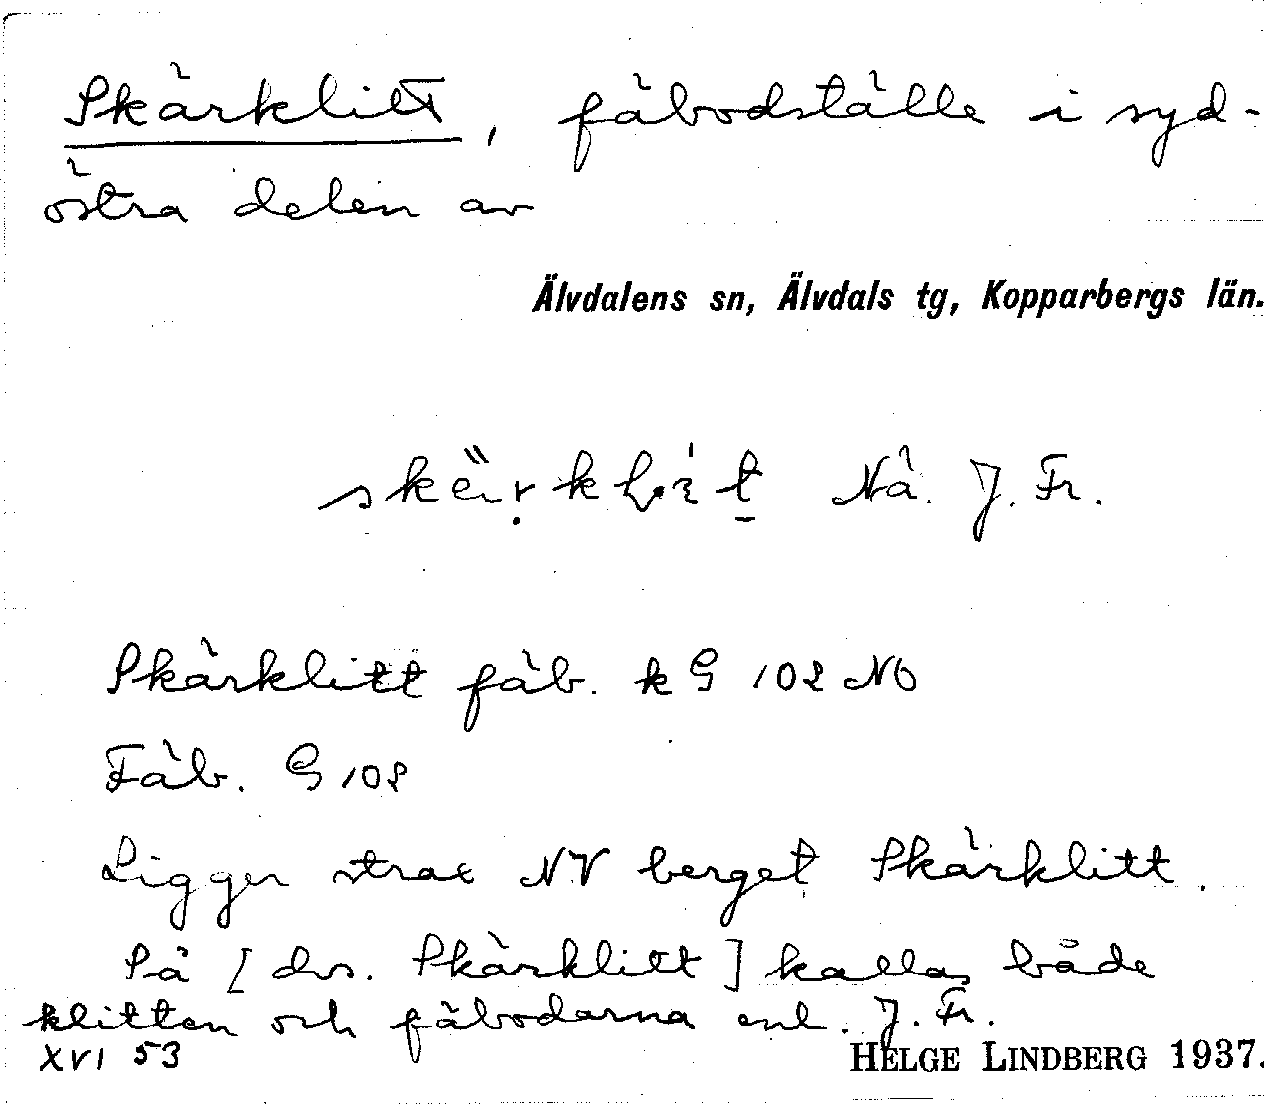 Skärklitt, fäbodställe i syd-
östra delen av
Älvdalens sn, Älvdals tg, Kopparbergs län.
Nä. J. Fr.
Skärklitt fäb. k G 102 NO
Fäb. G 102
Ligger strax NV berget Skärklitt.
Så [dvs. Skärklitt] kallas både
klitten och fäbodarna enl. J. Fr.
XVI 53
HELGE LINDBERG 1937.